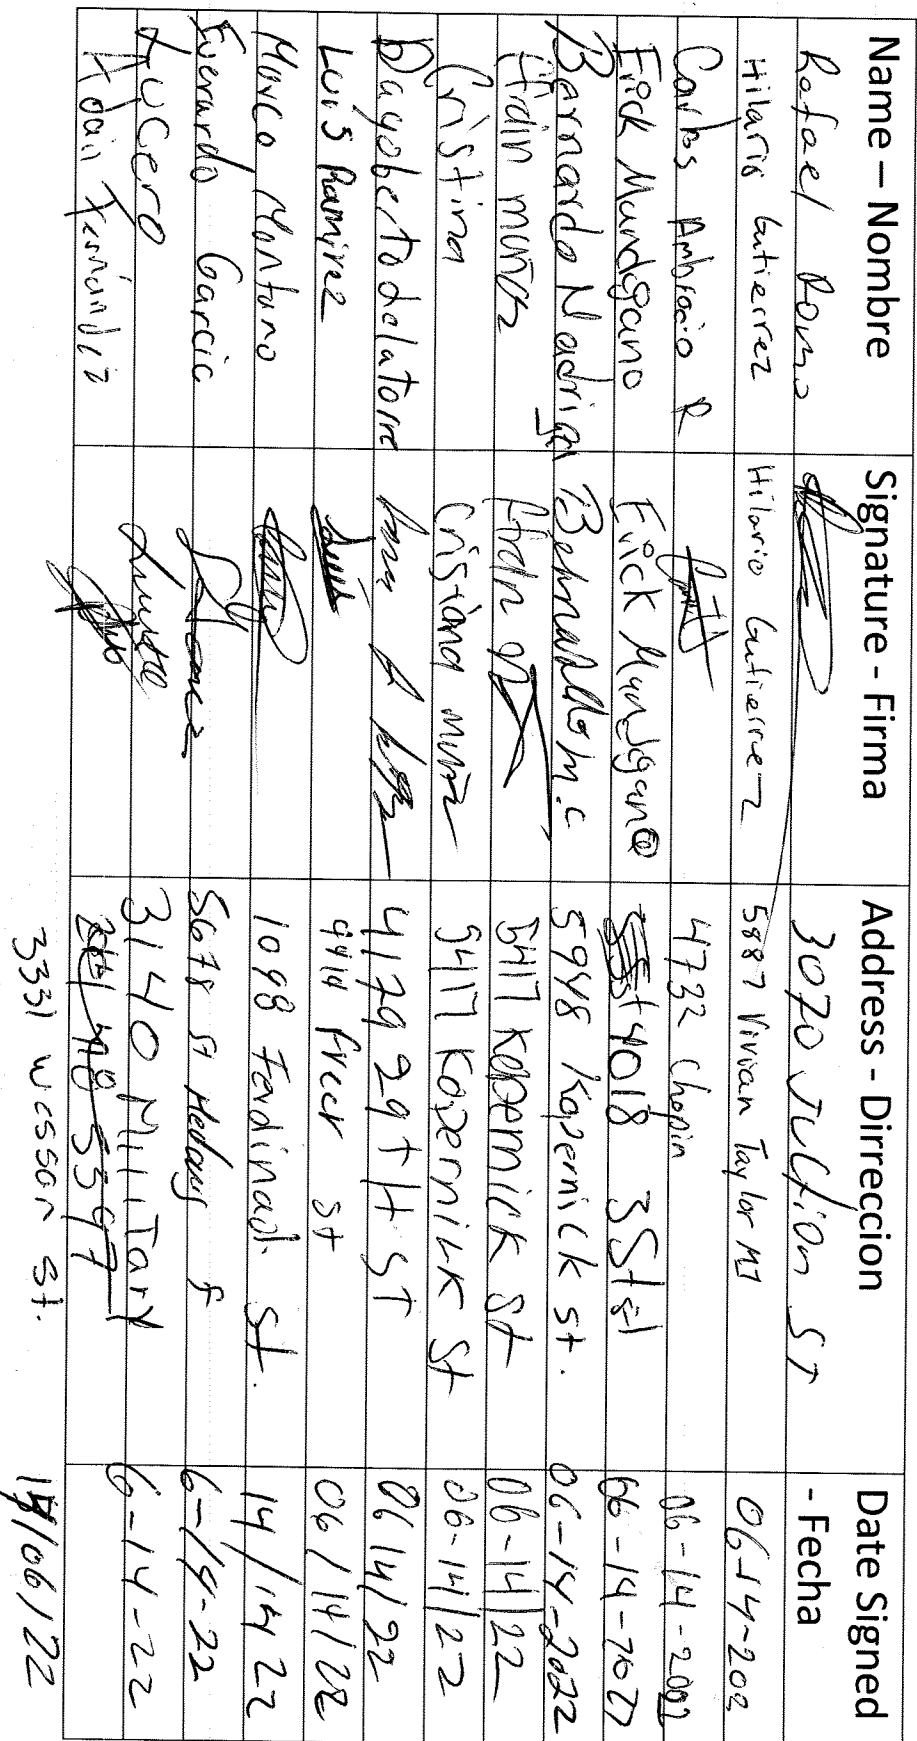 Name – Nombre Signature - Firma Address - Dirreccion Date Signed - Fecha
Rafael Romo 3070 Juction ST
Hilario Gutierrez Hilario Gutierrez 5887 Vivian Taylor MI 06-14-202
Carlos Ambrocio R 4732 Chopin 06-14-2002
Erick Mundgano Erick Mundgano 4018 35 st 06-14-2022
Bernardo Nadrigal Bernardo m.c 5948 Kopernick st. 06-14-2022
Efidin muñoz 5417 Kopernick St 06-14/22
Cristina Cristiana muñoz 5417 Kopernik St 06-14/22
Dagoberto delatorre 4179 29TH ST 06 14/22
Luis Ramirez Luis 4414 freer st 06/14/22
Marco Montano 1098 Ferdinad. st. 14/14 22
Everardo Garcia 5678 st Hedwig 6-14-22
Lucero 3140 MiliTary 6-14-22
Adair 3331 wesson st. /06/22